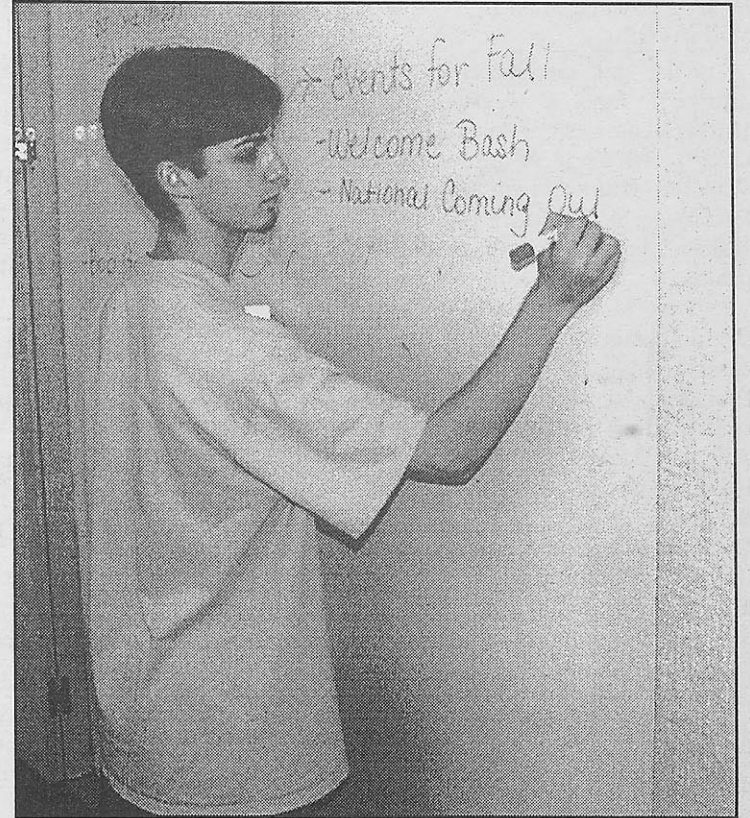 * Events for Fall
-Welcome Bash
- National Coming Out